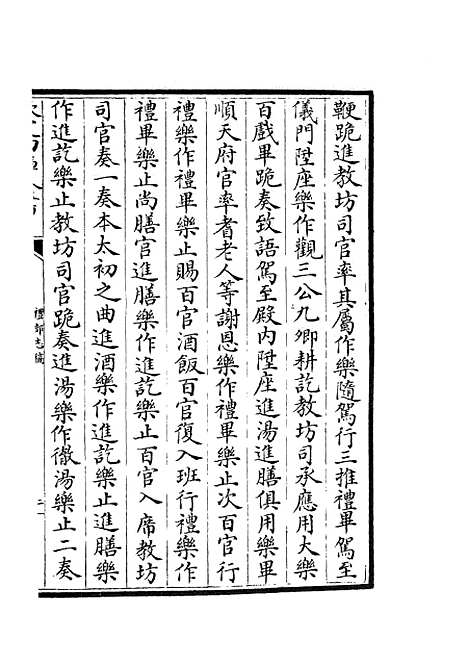 鞭跪進教坊司官率其屬作樂隨駕行三推禮畢駕至
儀門陞座樂作觀三公九卿耕訖教坊司承應用大樂
百戲畢跪奏致語駕至殿內陞座進湯進膳俱用樂畢
順天府官率耆老人等謝恩樂作禮畢樂止次百官行
禮樂作禮畢樂止賜百官酒飯百官復入班行禮樂作
禮畢樂止尚膳官進膳樂作進訖樂止百官入席教坊
司官奏一奏本太初之曲進酒樂作進訖樂止進膳樂
作進訖樂止教坊司官跪奏進湯樂作徹湯樂止二奏
禮部志稿